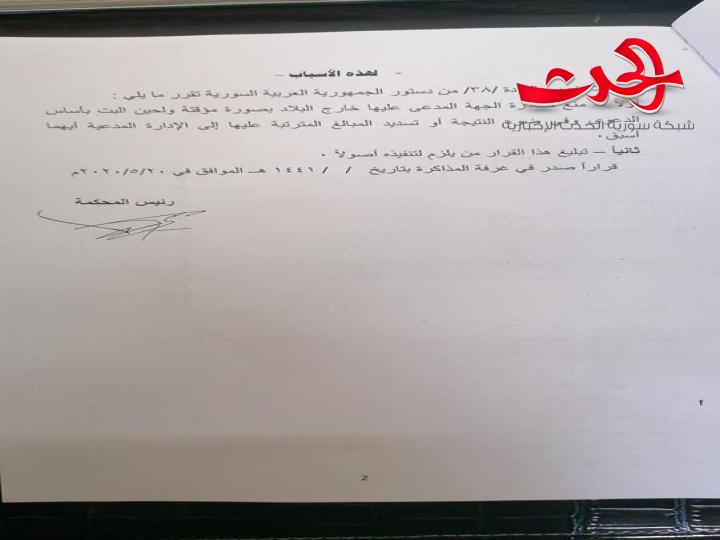 - لهذه الأسباب -
/٣٨/ من دستور الجمهورية العربية السورية تقرر ما يلي :
منع الجهة المدعى عليها خارج البلاد بصورة مؤقتة ولحين البت بأساس
الدعوى النتيجة أو تسديد المبالغ المترتبة عليها إلى الإدارة المدعية أيهما
أسبق .
ثانياً – تبليغ هذا القرار من يلزم لتنفيذه أصولاً .
قراراً صدر في غرفة المذاكرة بتاريخ / / ١٤٤١ هـ الموافق في ٢٠٢٠/٥/٢٠م
رئيس المحكمة
الحدث
شبكة سورية الحدث الإخبارية
1
2